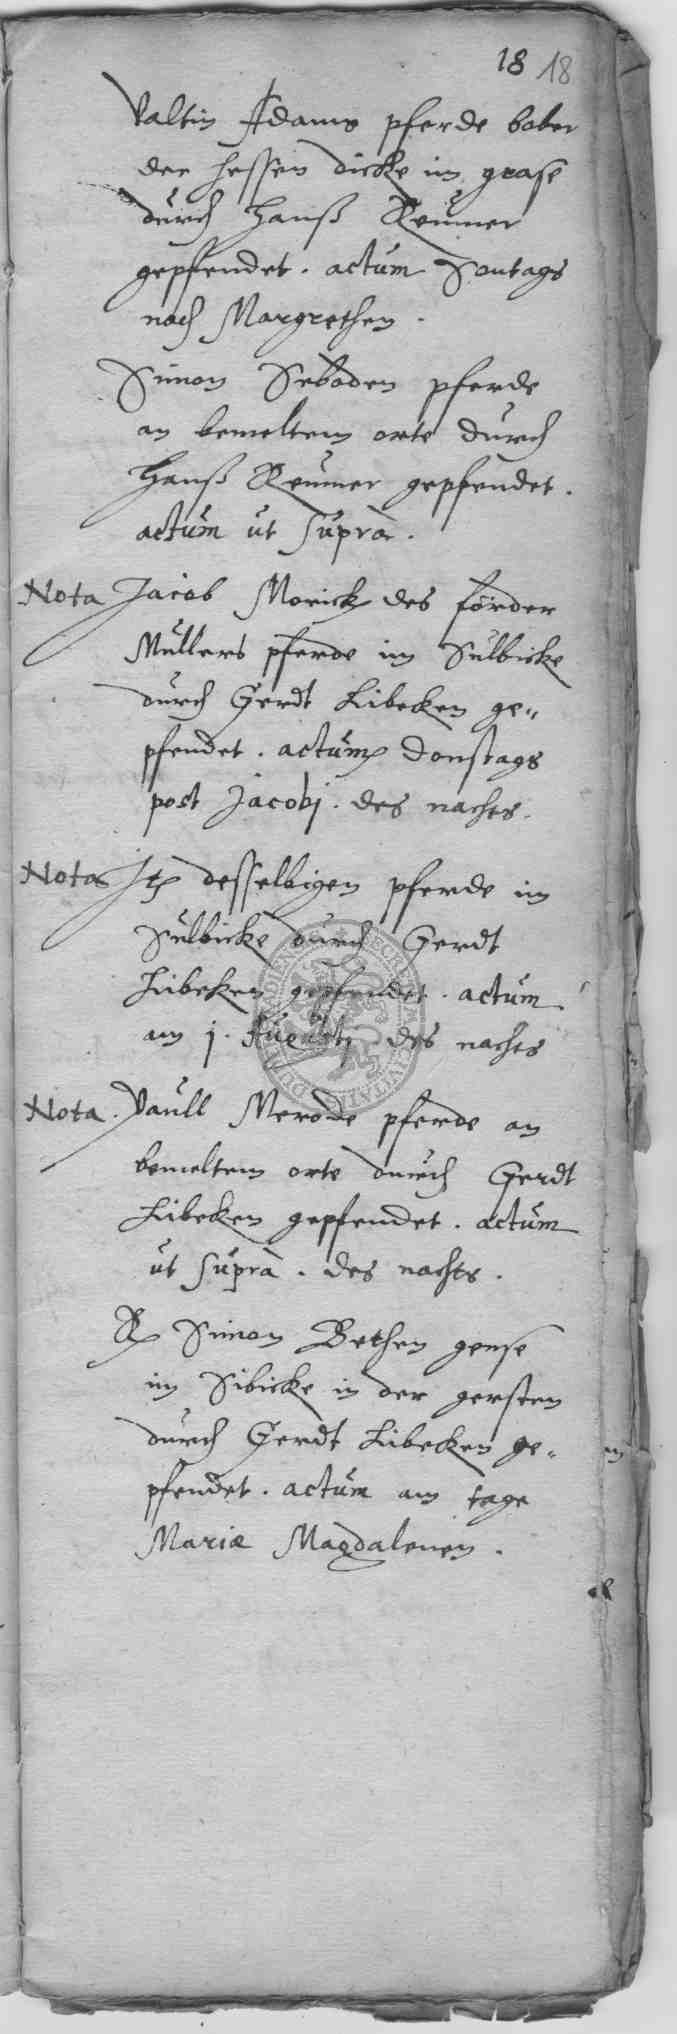 18 18
Valtin Adams pferde bober
der hessen dicke im grase
durch Hanß Reumer
gepfendet. actum Sontags
nach Margrethen.
Simon Seboden pferde
an bemeltem orte durch
Hanß Reumer gepfendet.
actum ut suprà.
Nota Jacob Morick des förder
Mullers pferde im Sulbicke
durch Gerdt Libecken ge-
pfendet. actum donstags
post Jacobj. des nachts.
Nota Jt desselbigen pferde im
Sulbicke durch Gerdt
Libeken gepfendet. actum
am j. Augustj des nachts
Nota. Paull Merode pferde an
bemeltem orte durch Gerdt
Libeken gepfendet. actum
ut suprà. des nachts.
Simon Bethen gense
im Sibicke in der gersten
durch Gerdt Libecken ge-
pfendet. actum am tage
Mariæ Magdalenen.